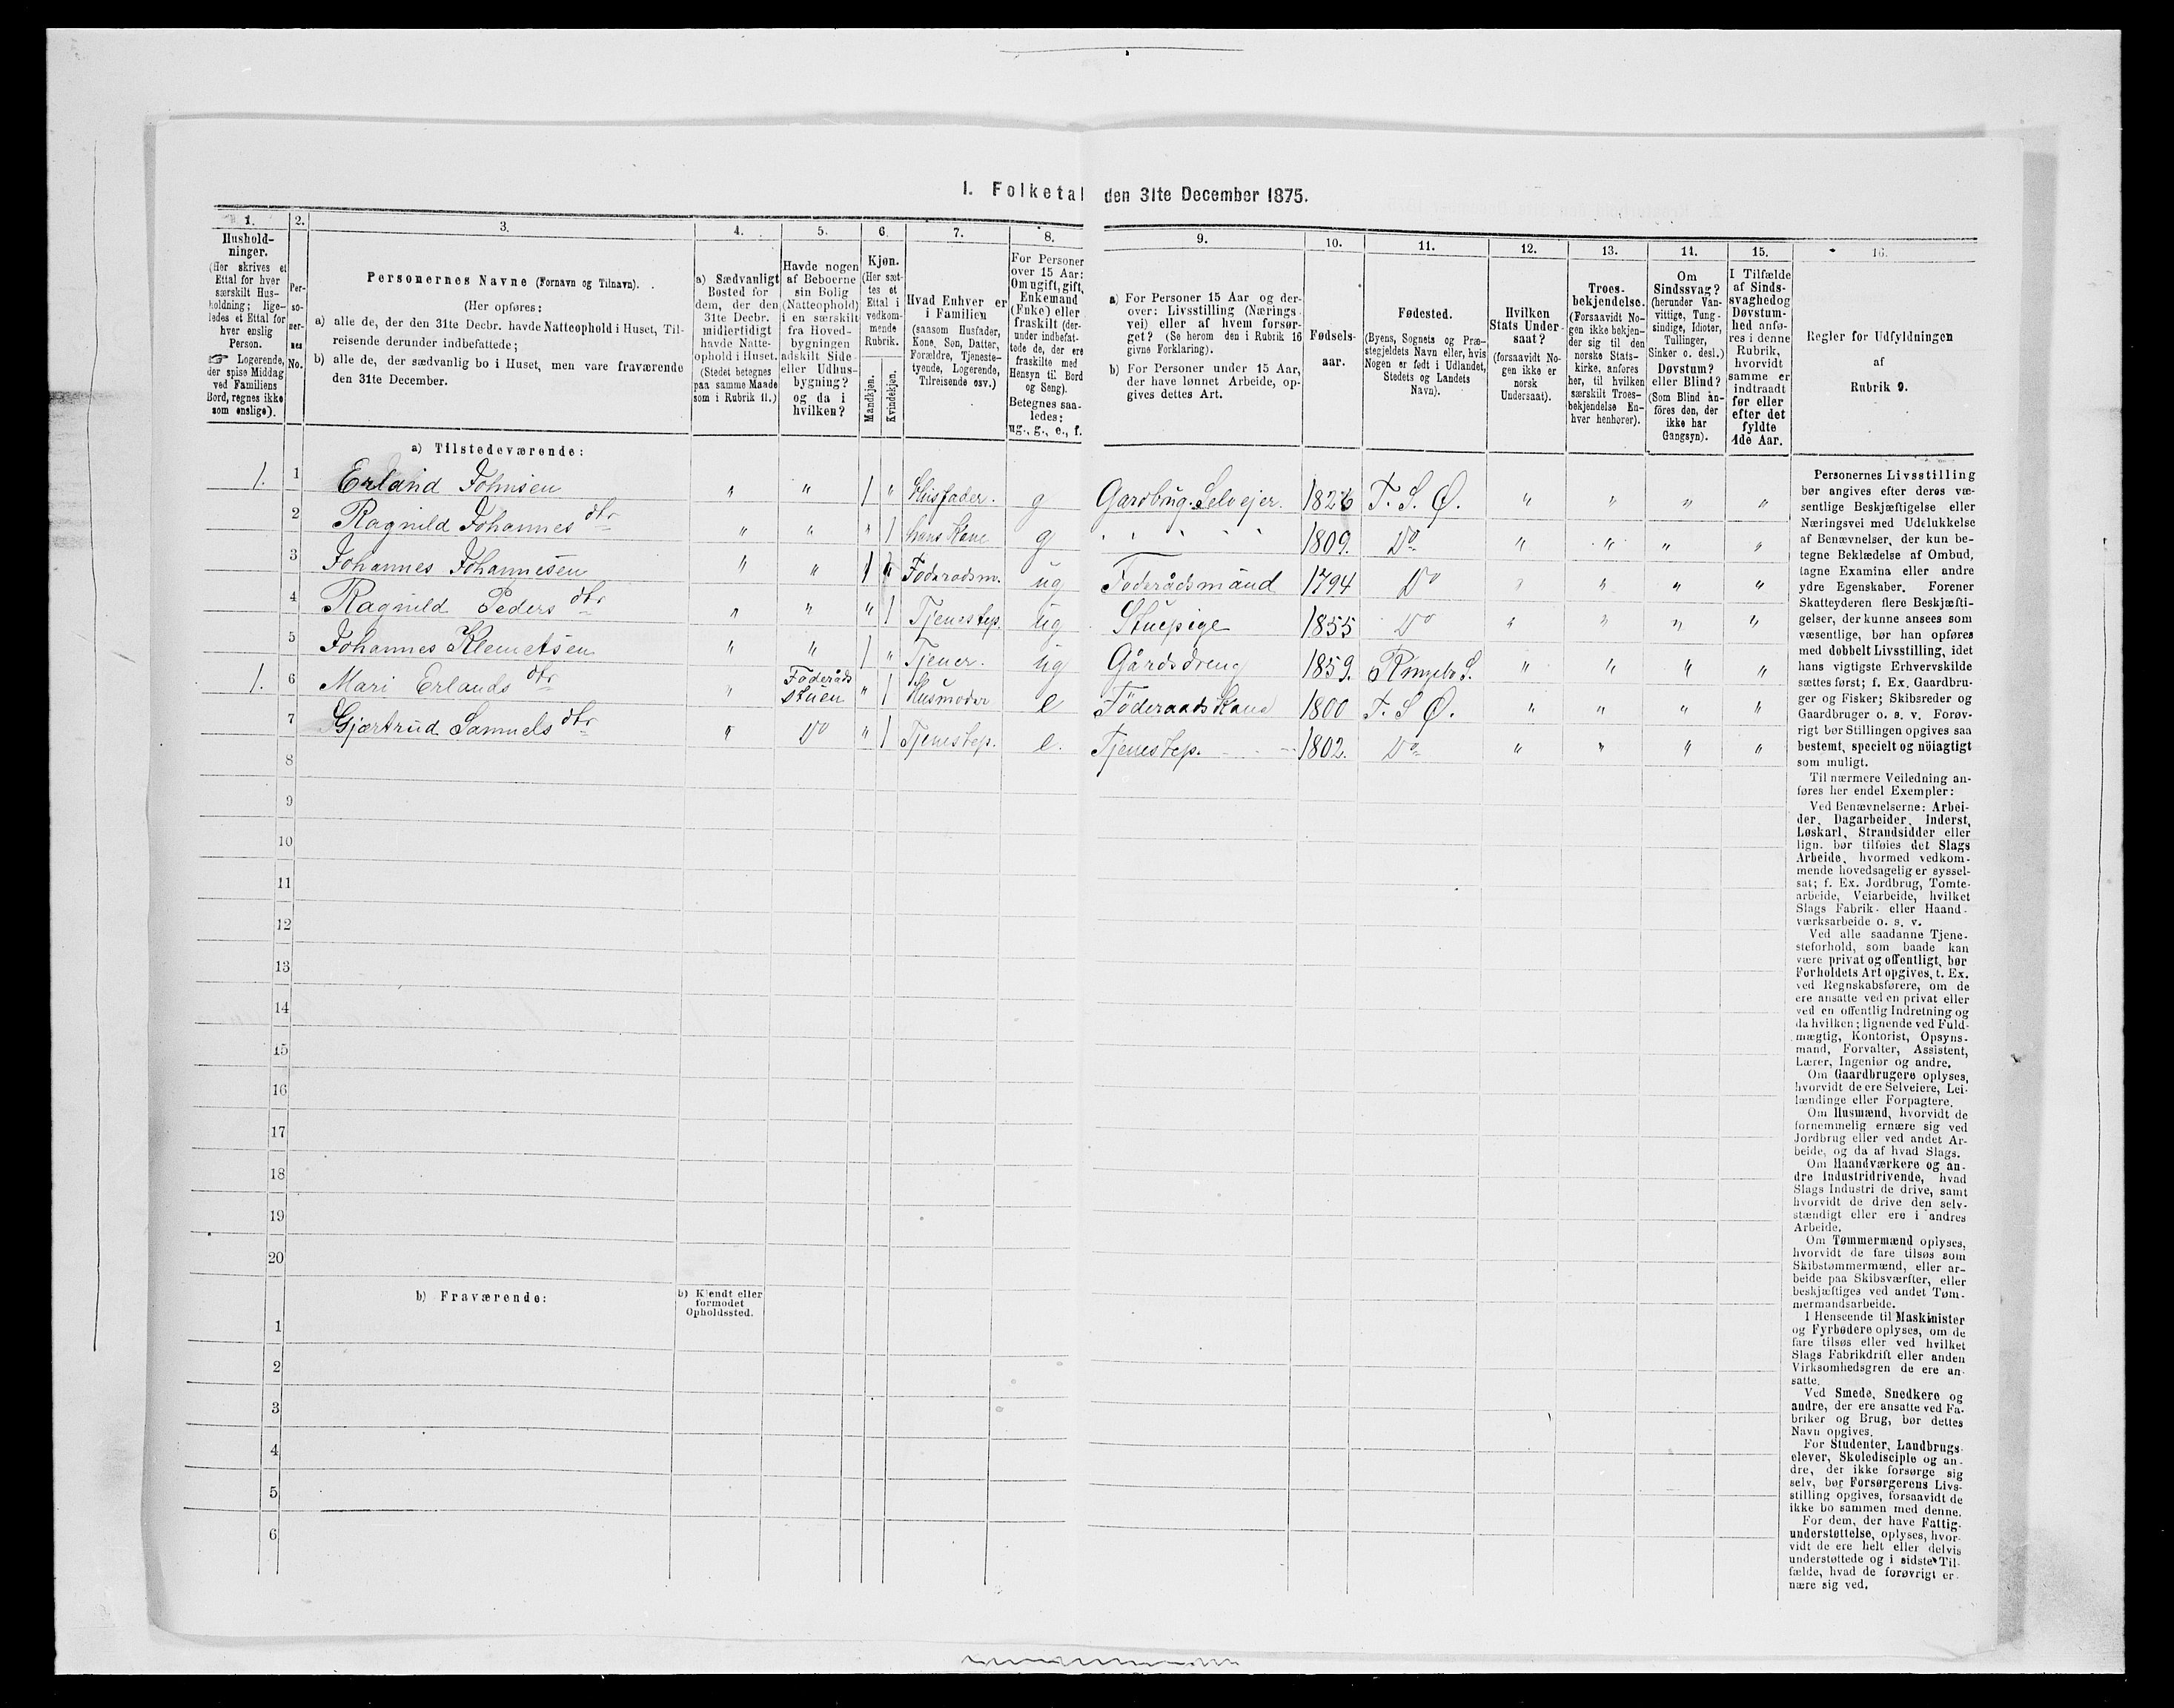 1. Folketal den 31te December 1875.
1. 2. 3. 4. 5. 6. 7. 8. 9. 10. 11. 12. 13. 14. 15. 16.
Hushold-
ninger.
(Her skrives et
Ettal for hver
særskilt Hus-
holdning; lige-
ledes et Ettal for
hver enslig
Person.
☞ Logerende,
der spise Middag
ved Familiens
Bord, regnes ikke
som enslige).
Per-
so-
ner-
nes
No.
Personernes Navne (Fornavn og Tilnavn).
(Her opføres:
a) alle de, der den 31te Decbr. havde Natteophold i Huset, Til-
reisende derunder indbefattede;
b) alle de, der sædvanlig bo i Huset, men vare fraværende
den 31te December.
a) Sædvanligt
Bosted for
dem, der den
31te Decbr.
midlertidigt
havde Natte-
ophold i Huset.
(Stedet betegnes
paa samme Maade
som i Rubrik 11.)
Havde nogen
af Beboerne
sin Bolig
(Natteophold)
i en særskilt
fra Hoved-
bygningen
adskilt Side-
eller Udhus-
bygning?
og da i
hvilken?
Kjøn.
(Her sæt-
tes et
Ettal i
vedkom-
mende
Rubrik.
Mandkjøn.
Kvindekjøn.
Hvad Enhver er
i Familien
(saasom Husfader,
Kone, Søn, Datter,
Forældre, Tjeneste-
tyende, Logerende,
Tilreisende osv.)
For Personer
over 15 Aar:
Om ugift, gift,
Enkemand
(Enke) eller
fraskilt (der-
under indbefat-
tede de, der ere
fraskilte med
Hensyn til Bord
og Seng).
Betegnes saa-
ledes:
ug., g., e., f.
a) For Personer 15 Aar og der-
over: Livsstilling (Nærings-
vei) eller af hvem forsør-
get? (Se herom den i Rubrik 16
givne Forklaring).
b) For Personer under 15 Aar,
der have lønnet Arbeide, op-
gives dettes Art.
Fødsels-
aar.
Fødested.
(Byens, Sognets og Præ-
stegjeldets Navn eller, hvis
Nogen er født i Udlandet,
Stedets og Landets
Navn).
Hvilken
Stats Under-
saat?
(forsaavidt No-
gen ikke er
norsk
Undersaat).
Troes-
bekjendelse.
(Forsaavidt No-
gen ikke bekjen-
der sig til den
norske Stats-
kirke, anføres
her, til hvilken
særskilt Troes-
bekjendelse En-
hver henhører).
Om
Sindssvag?
(herunder Van-
vittige, Tung-
sindige, Idioter,
Tullinger,
Sinker o. desl.)
Døvstum?
eller Blind?
(Som Blind an-
føres den, der
ikke har
Gangsyn).
I Tilfælde
af Sinds-
svaghed og
Døvstum-
hed anfø-
res i denne
Rubrik,
hvorvidt
samme er
indtraadt
før eller
efter det
fyldte
4de Aar.
Regler for Udfyldningen
af
Rubrik 9.
a) Tilstedeværende:
1. 1 Erland Johnsen " " 1 " Husfader. g Gardbrug. Selvejer. 1826 F. S. Ø. " " " "
2 Ragnild Johannes dtr " " " 1 hans Kone g " " " " " 1809. Do " " " "
3 Johannes Johannesen " " 1 " Föderadsm. ug Föderådsmand 1794 Do " " " "
4 Ragnild Peders dtr " " " 1 Tjenestep. ug Stuepige 1855 Do " " " "
5 Johannes Klemetsen " " 1 " Tjener. ug Gårdsdreng 1859. Ringebo S. " " " "
1. 6 Mari Erlands dtr " Föderåds
stuen " 1 Husmoder e Föderaads Kone 1800 F. S Ø. " " " "
7 Gjærtrud Samuels dtr " Do " 1 Tjenestep. e. Tjenestep. 1802. Do " " " "
8
9
10
11
12
13
14
15
16
17
18
19
20
b) Fraværende:
b) Kjendt eller
formodet
Opholdssted.
1
2
3
4
5
6
Personernes Livsstilling
bør angives efter deres væ-
sentlige Beskjæftigelse eller
Næringsvei med Udelukkelse
af Benævnelser, der kun be-
tegne Beklædelse af Ombud,
tagne Examina eller andre
ydre Egenskaber. Forener
Skatteyderen flere Beskjæfti-
gelser, der kunne ansees som
væsentlige, bør han opføres
med dobbelt Livsstilling, idet
hans vigtigste Erhvervskilde
sættes først; f. Ex. Gaardbru-
ger og Fisker; Skibsreder og
Gaardbruger o. s. v. Forøv-
rigt bør Stillingen opgives saa
bestemt, specielt og nöiagtigt
som muligt.
Til nærmere Veiledning an-
føres her endel Exempler:
Ved Benævnelserne: Arbei-
der, Dagarbeider, Inderst,
Løskarl, Strandsidder eller
lign. bør tilføies det Slags
Arbeide, hvormed vedkom-
mende hovedsagelig er syssel-
sat; f. Ex. Jordbrug, Tomte-
arbeide, Veiarbeide, hvilket
Slags Fabrik- eller Haand-
værksarbeide o. s. v.
Ved alle saadanne Tjene-
steforhold, som baade kan
være privat og offentligt, bør
Forholdets Art opgives, t. Ex.
ved Regnskabsførere, om de
ere ansatte ved en privat eller
ved en offentlig Indretning og
da hvilken; lignende ved Fuld-
mægtig, Kontorist, Opsyns-
mand, Forvalter, Assistent,
Lærer, Ingeniør og andre.
Om Gaardbrugere oplyses,
hvorvidt de ere Selveiere, Lei-
lændinge eller Forpagtere.
Om Husmænd, hvorvidt de
fornemmelig ernære sig ved
Jordbrug eller ved andet Ar-
beide, og da af hvad Slags.
Om Haandværkere og an-
dre Industridrivende, hvad
Slags Industri de drive, samt
hvorvidt de drive den selv-
stændigt eller ere i andres
Arbeide.
Om Tømmermænd oplyses,
hvorvidt de fare tilsøs som
Skibstømmermænd, eller ar-
beide paa Skibsværfter, eller
beskjæftiges ved andet Tøm-
mermandsarbeide.
I Henseende til Maskinister
og Fyrbødere oplyses, om de
fare tilsøs eller ved hvilket
Slags Fabrikdrift eller anden
Virksomhedsgren de ere an-
satte.
Ved Smede, Snedkere og
andre, der ere ansatte ved Fa-
briker og Brug, bør dettes
Navn opgives.
For Studenter, Landbrugs-
elever, Skoledisciple og an-
dre, der ikke forsørge sig
selv, bør Forsørgerens Livs-
stilling opgives, forsaavidt de
ikke bo sammen med denne.
For dem, der have Fattig-
understøttelse, oplyses, hvor-
vidt de ere helt eller delvis
understøttede og i sidste Til-
fælde, hvad de forøvrigt er-
nære sig ved.